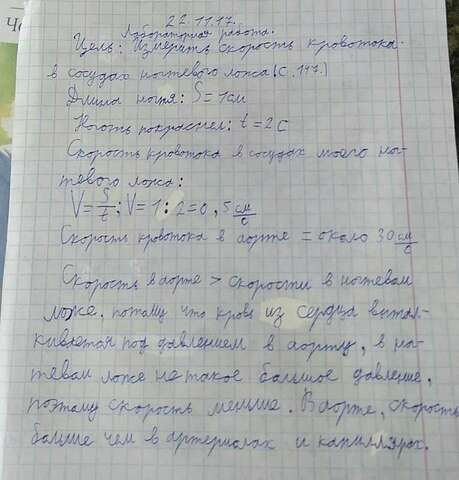 22.11.17.
Лабораторная работа.
Цель: Измерить скорость кровотока
в сосудах ногтевого ложа (с. 147.)
Длина ногтя: S = 1 см
Ноготь покраснел: t = 2 с
Скорость кровотока в сосудах моего ног-
тевого ложа:
V = S/t; V = 1 : 2 = 0,5 см/с
Скорость кровотока в аорте = около 30 см/с
Скорость в аорте > скорости в ногтевом
ложе, потому что кровь из сердца вытал-
кивается под давлением в аорту, в ног-
тевом ложе не такое большое давление,
поэтому скорость меньше. В аорте, скорость
больше чем в артериолах и капиллярах.